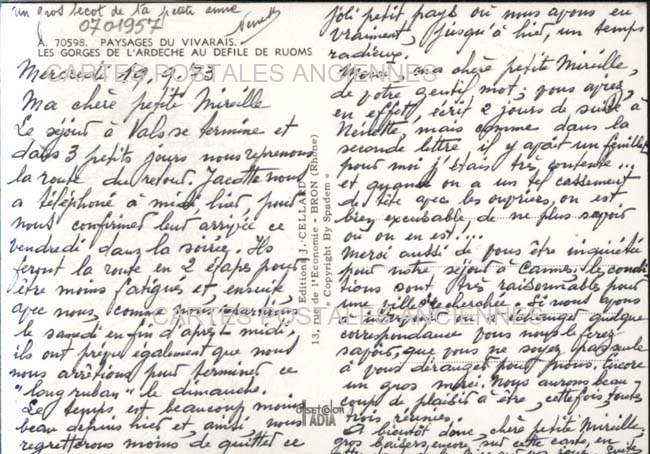 un gros bécot de ta petite amie
Nénette
0701957
A. 70598. PAYSAGES DU VIVARAIS.
LES GORGES DE L'ARDECHE AU DEFILE DE RUOMS
Mercredi 19.9.73
Ma chère petite Mireille
Le séjour à Vals se termine et
dans 3 petits jours nous reprenons
la route du retour. Jacotte nous
a téléphoné à midi hier pour
nous confirmer leur arrivée ce
vendredi dans la soirée. Ils
feront la route en 2 étapes pour
être moins fatigués et, ensuite
avec nous, comme nous
le samedi en fin d'après midi,
ils ont prévu également que nous
nous arrêtions pour terminer ce
"long ruban" le dimanche.
Le temps est beaucoup moins
beau depuis hier et ainsi, nous
regretterons moins de quitter ce
Editions J. CELLARD
13, rue de l'Economie - BRON (Rhône)
« Copyright By Spadem »
offsetcolor
IADIA
joli petit pays où nous avons eu
vraiment, jusqu'à hier, un temps
radieux.
Merci, ma chère petite Mireille,
de votre gentil mot; vous aviez,
en effet, écrit 2 jours de suite à
Nénette, mais comme dans la
seconde lettre il y avait un feuillet
pour moi j'étais très contente...
et quand on a un tel cassement
de tête avec les ouvriers, on est
bien excusable de ne plus savoir
où on en est!...
Merci aussi de vous être inquiétée
pour notre séjour à Cannes; les condi-
tions sont très raisonnables pour
une ville recherchée. Si nous avons
échanger quelque
correspondance vous nous le ferez
savoir, que vous ne soyez pas seule
à vous déranger pour nous. Encore
un gros merci. Nous aurons beau-
coup de plaisir à être, cette fois, toutes
trois réunies.
A bientôt donc, chère petite Mireille,
gros baisers, encore sur cette carte, en
CARTES POSTALES ANCIENNES
CARTES POSTALES ANCIENNES